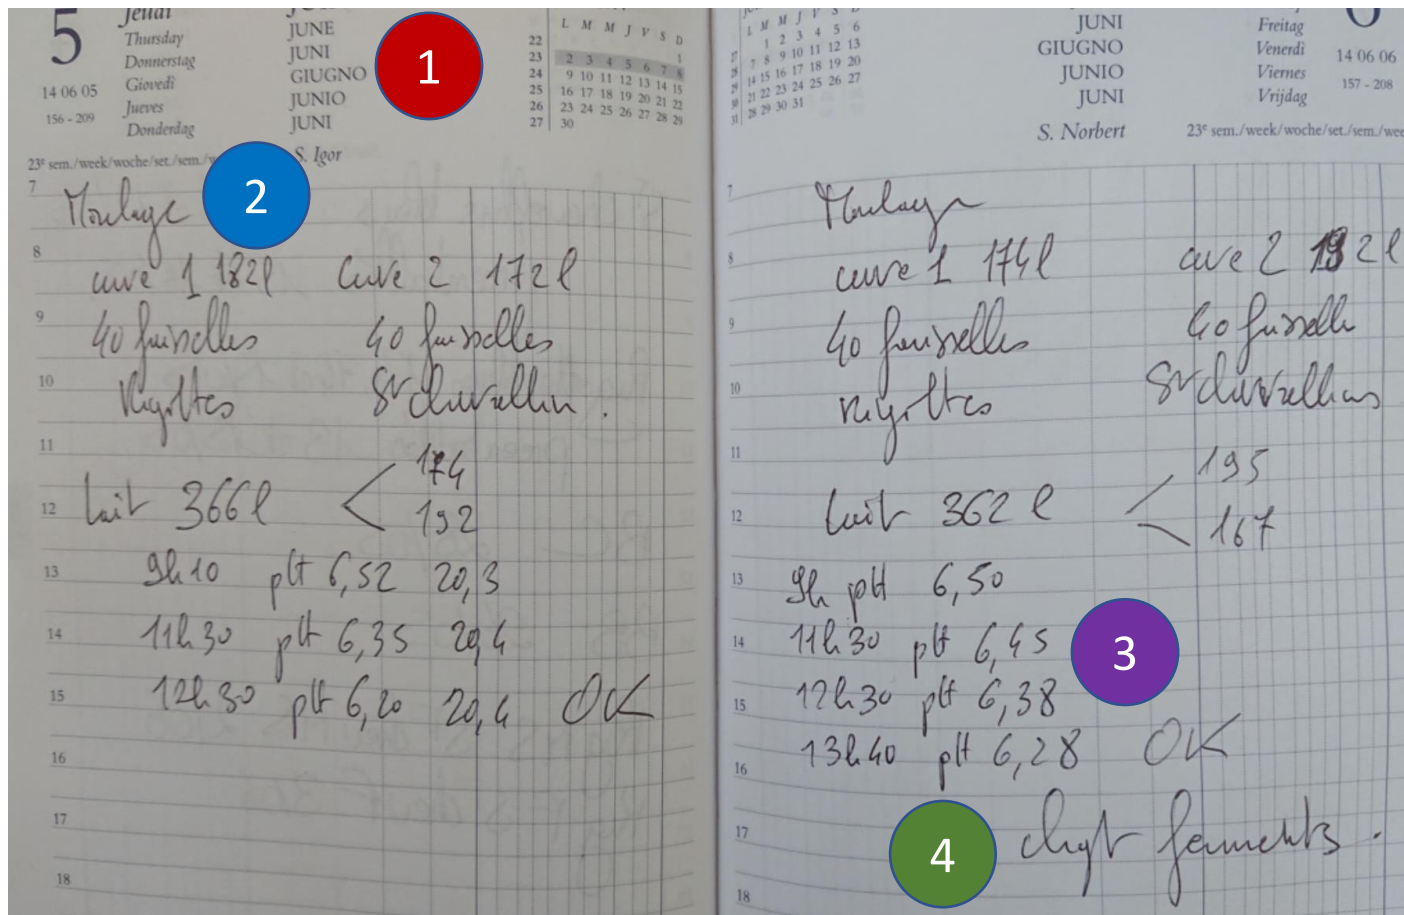 5 Jeudi
Thursday JUNE
Donnerstag JUNI
Giovedì GIUGNO
Jueves JUNIO
Donderdag JUNI
14 06 05
156 - 209
S. Igor
23e sem./week/woche/set./sem./w
L M M J V S D
22 1
23 2 3 4 5 6 7 8
24 9 10 11 12 13 14 15
25 16 17 18 19 20 21 22
26 23 24 25 26 27 28 29
27 30
1
2
7
Moulage
8
cuve 1 182l cuve 2 172l
9
40 faisselles 40 faisselles
10
Rigottes St Marcellin.
11
174
12 lait 366l <
192
13 9h10 pH 6,52 20,3
14 11h30 pH 6,35 20,4
15 12h30 pH 6,20 20,4 OK
16
17
18
L M M J V S D
1 2 3 4 5 6
7 8 9 10 11 12 13
14 15 16 17 18 19 20
21 22 23 24 25 26 27
31 28 29 30 31
JUNI
GIUGNO
JUNIO
JUNI
S. Norbert
6
Freitag
Venerdì
Viernes
Vrijdag
14 06 06
157 - 208
23e sem./week/woche/set./sem./wee
7
Moulage
8
cuve 1 174l cuve 2 192l
9
40 faisselles 40 faisselle
10
rigottes St Marcellins
11
195
12 lait 362 l <
167
13 9h pH 6,50
14 11h30 pH 6,45
3
15 12h30 pH 6,38
13h40 pH 6,28 OK
16
4
17 chgt ferments.
18